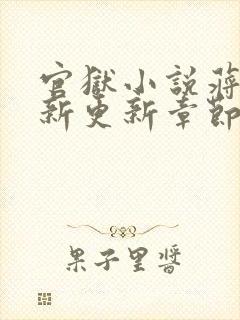 官獄小説蔣
新更新章節
果子里醬